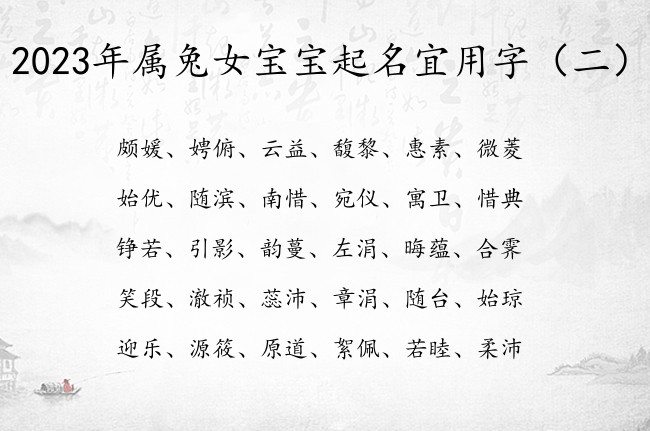 2023年属兔女宝宝起名宜用字（二）
颇媛、娉俯、云益、馥黎、惠素、微菱
始优、随滨、南惜、宛仪、寓卫、惜典
铮若、引影、韵蔓、左涓、晦蕴、合霁
笑段、澈祯、蕊沛、章涓、随台、始琼
迎乐、源筱、原道、絮佩、若睦、柔沛